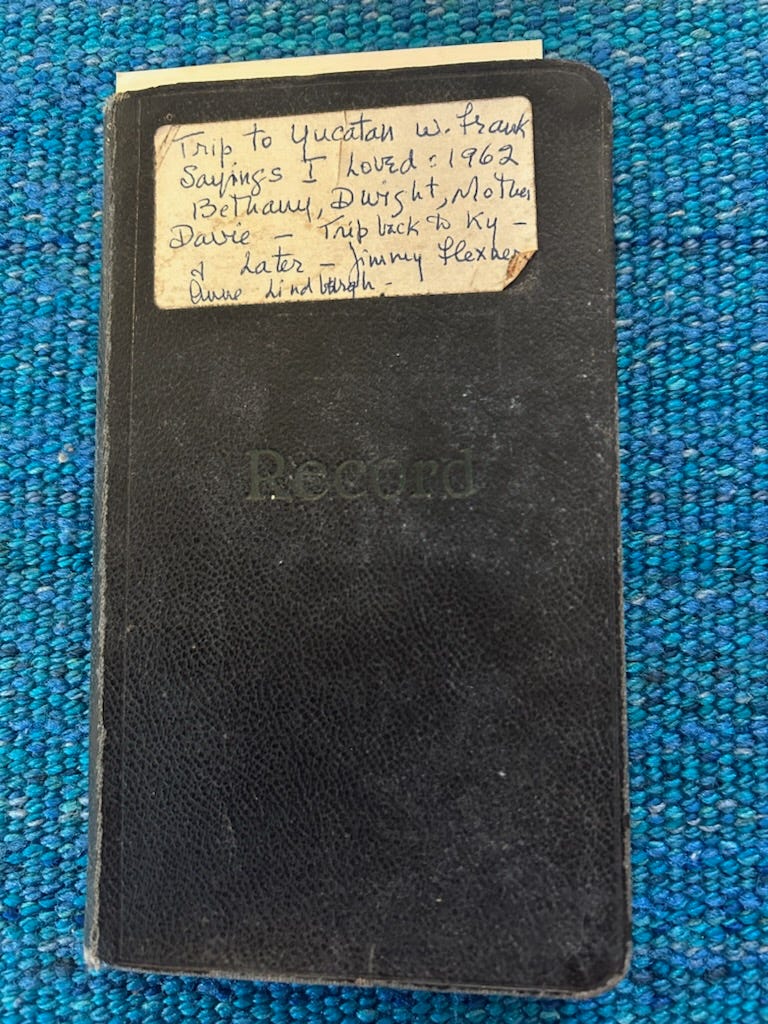 Trip to Yucatan w. Frank
Sayings I Loved : 1962
Bethany, Dwight, Mother
Davie - Trip back to Ky -
& Later - Jimmy Flexner
Anne Lindbergh -
Record